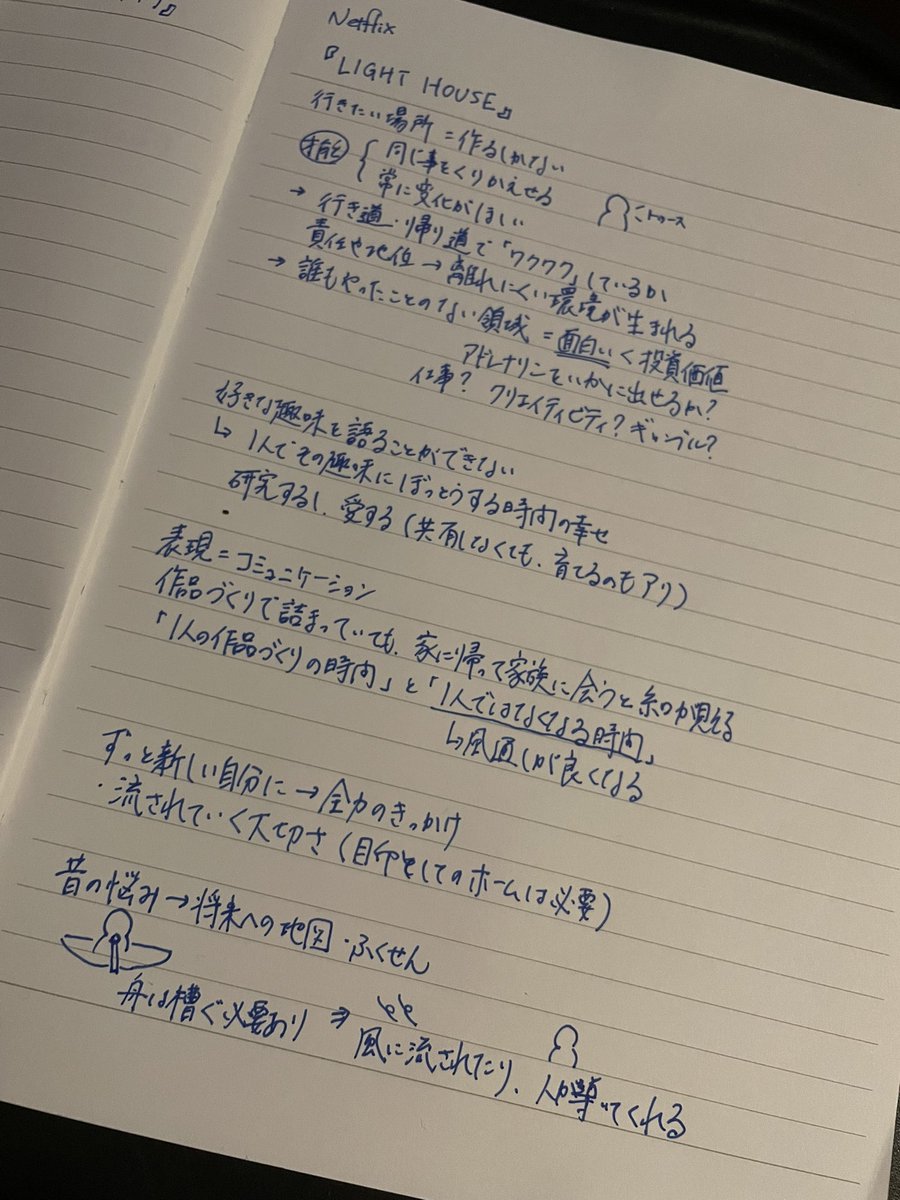 Netflix
『LIGHT HOUSE』
行きたい場所=作るしかない
才能 { 同じ事をくりかえせる
常に変化がほしい
→ 行き道・帰り道で「ワクワク」しているか
責任や地位 → 離れにくい環境が生まれる
→ 誰もやったことのない領域 = 面白い < 投資価値
アドレナリンをいかに出せるか?
仕事? クリエイティビティ? ギャンブル?
好きな趣味を語ることができない
↳ 1人でその趣味にぼっとうする時間の幸せ
研究するし、愛する (共有しなくても、育てるのもアリ)
表現=コミュニケーション
作品づくりで詰まっていても、家に帰って家族に会うと糸口が見える
「1人の作品づくりの時間」と「1人ではなくなる時間」
↳風通しが良くなる
ずっと新しい自分に → 全力のきっかけ
・流されていく大切さ (目印としてのホームは必要)
昔の悩み → 将来への地図・ふくせん
舟は漕ぐ必要あり ⇒ 風に流されたり、人が導いてくれる